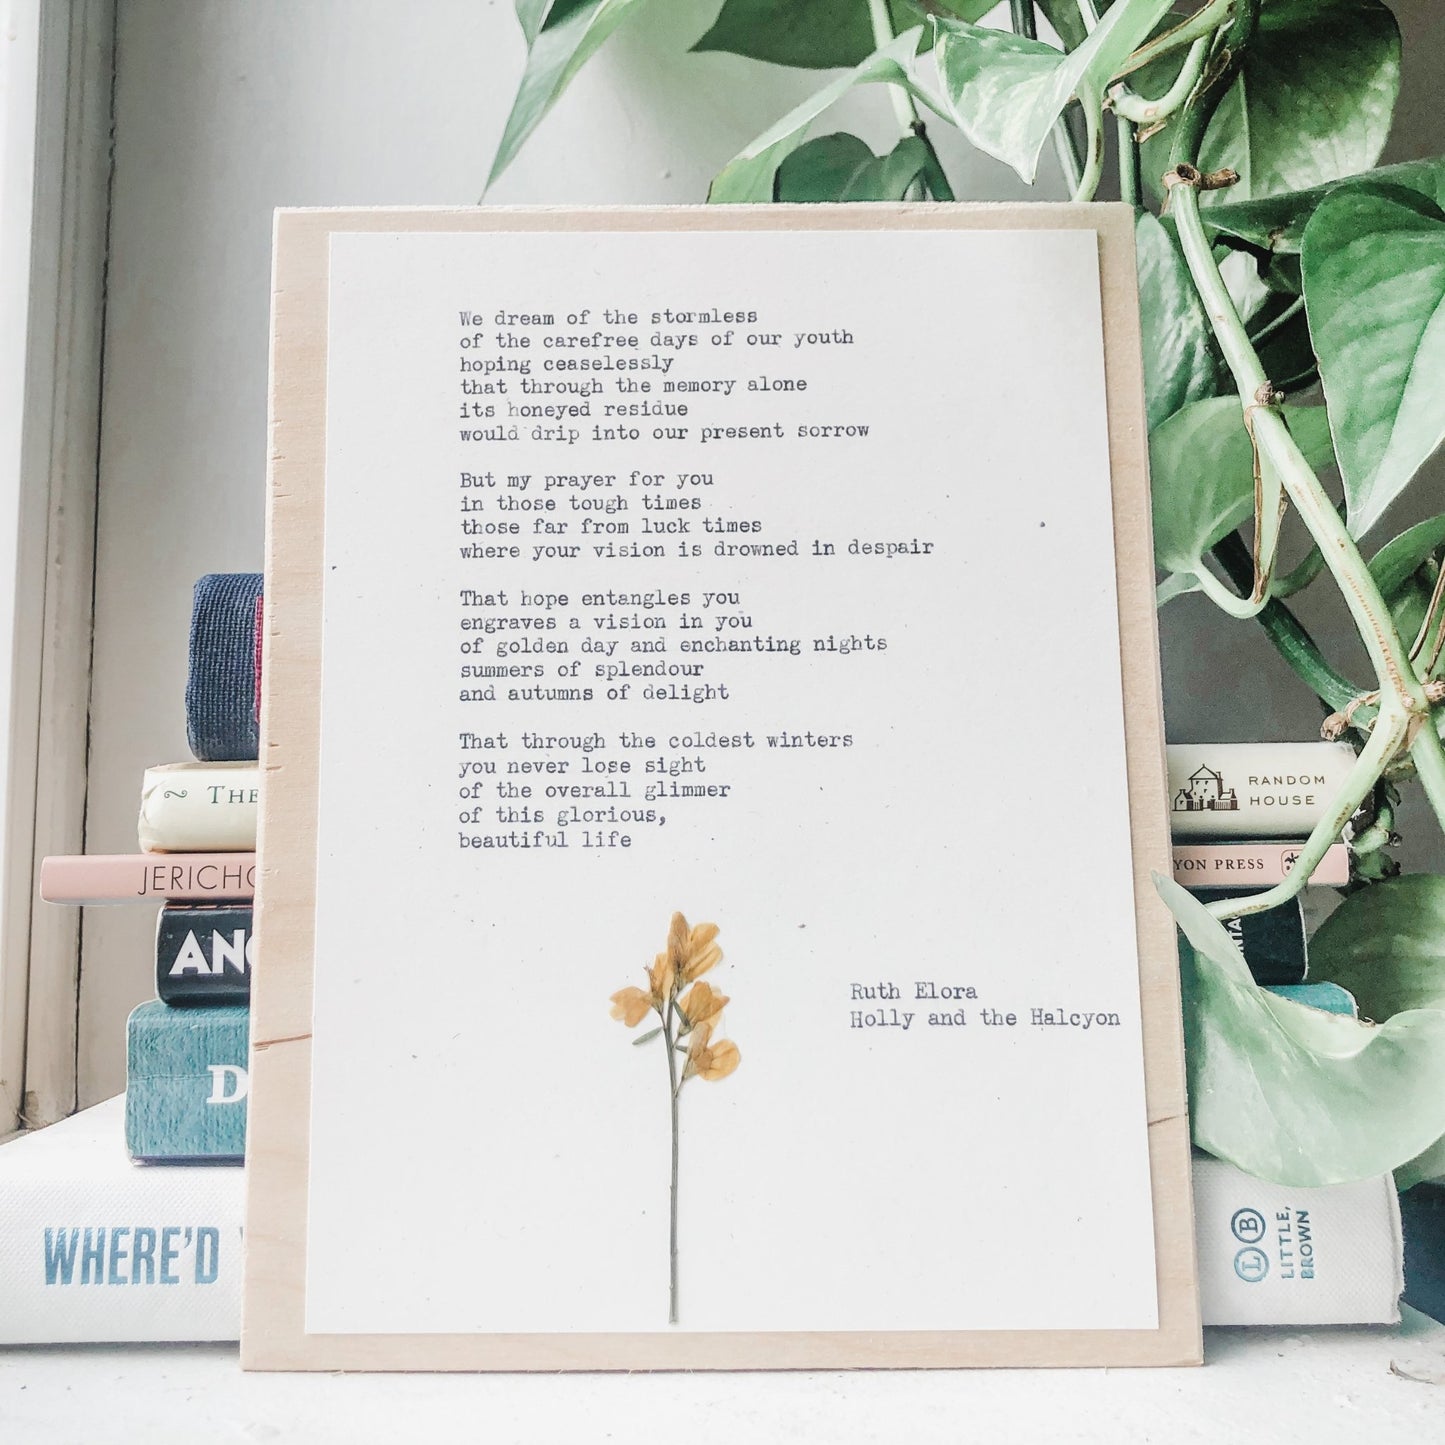 We dream of the stormless
of the carefree days of our youth
hoping ceaselessly
that through the memory alone
its honeyed residue
would drip into our present sorrow
But my prayer for you
in those tough times
those far from luck times
where your vision is drowned in despair
That hope entangles you
engraves a vision in you
of golden day and enchanting nights
summers of splendour
and autumns of delight
That through the coldest winters
you never lose sight
of the overall glimmer
of this glorious,
beautiful life
Ruth Elora
Holly and the Halcyon
THE
JERICHO
AN
D
WHERE'D
RANDOM
HOUSE
YON PRESS
LB
LITTLE,
BROWN